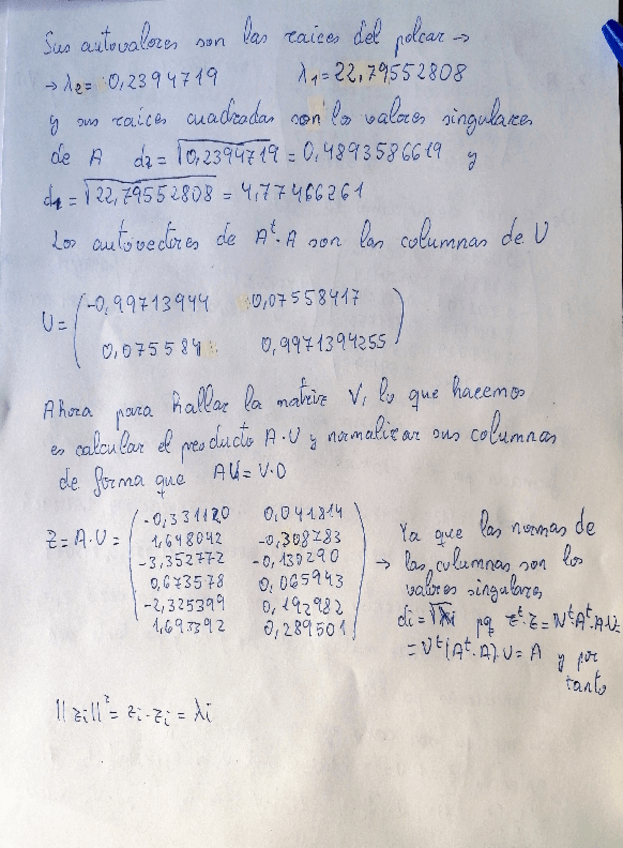 Sus autovalores son las raíces del polcar →
→ λ₂ = 0,2394719 λ₁ = 22,79552808
y sus raíces cuadradas son los valores singulares
de A d₂ = √0,2394719 = 0,4893586619 y
d₁ = √22,79552808 = 4,77466261
Los autovectores de Aᵗ·A son las columnas de U
U = ( -0,99713944 0,07558417 )
( 0,075584 0,9971394255 )
Ahora para hallar la matriz V, lo que hacemos
es calcular el producto A·U y normalizar sus columnas
de forma que AU = V·D
Z = A·U = ( -0,331120 0,041814
1,648042 -0,308783
-3,352772 -0,130290
0,673578 0,065943
-2,325399 0,192982
1,693392 0,289501 )
→ Ya que las normas de
las columnas son los
valores singulares
di = √λi pq Zᵗ·Z = Uᵗ·Aᵗ·A·U =
= Uᵗ(Aᵗ·A)·U = Λ y por
tanto
||zi||² = zi·zi = λi